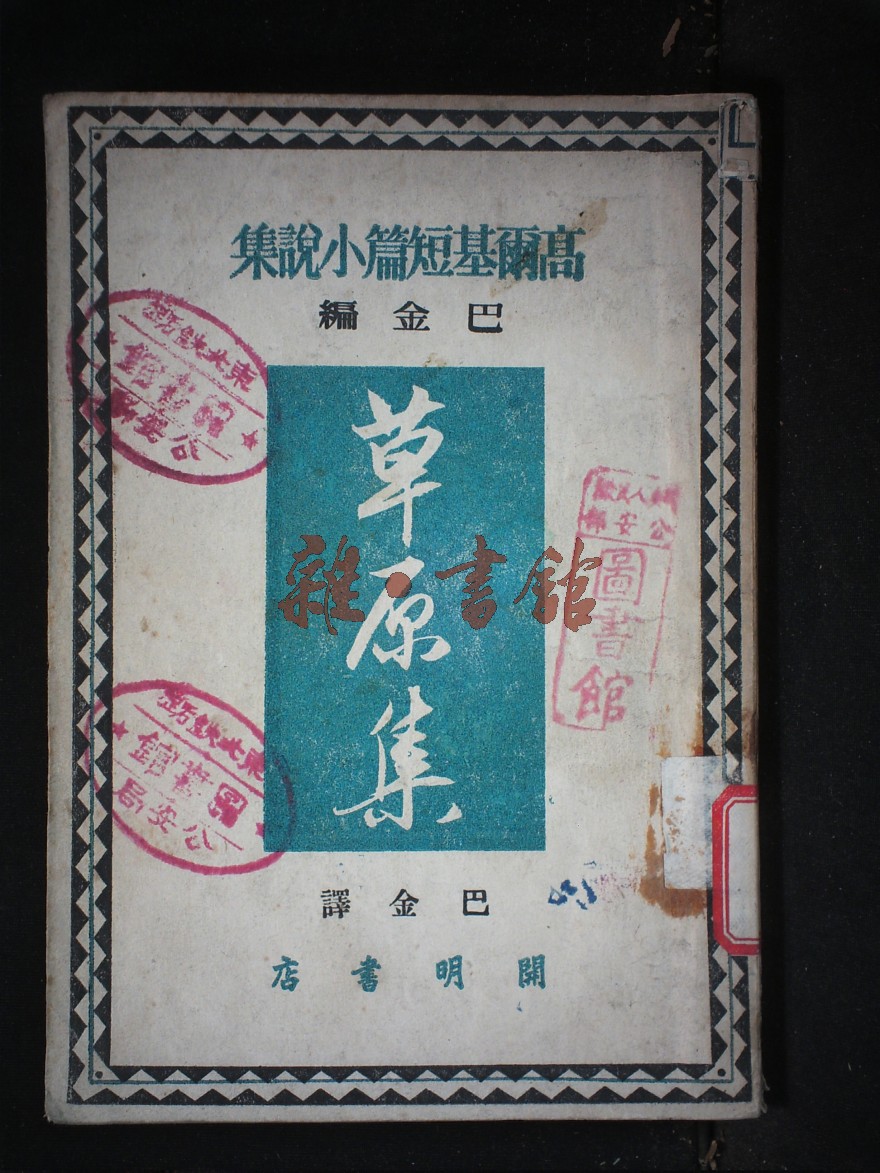 高爾基短篇小說集
巴金編
草原集
巴金譯
開明書店
雜·書館
東北鐵路
圖書館
公安局
東北鐵路
圖書館
公安局
公安部
圖書館